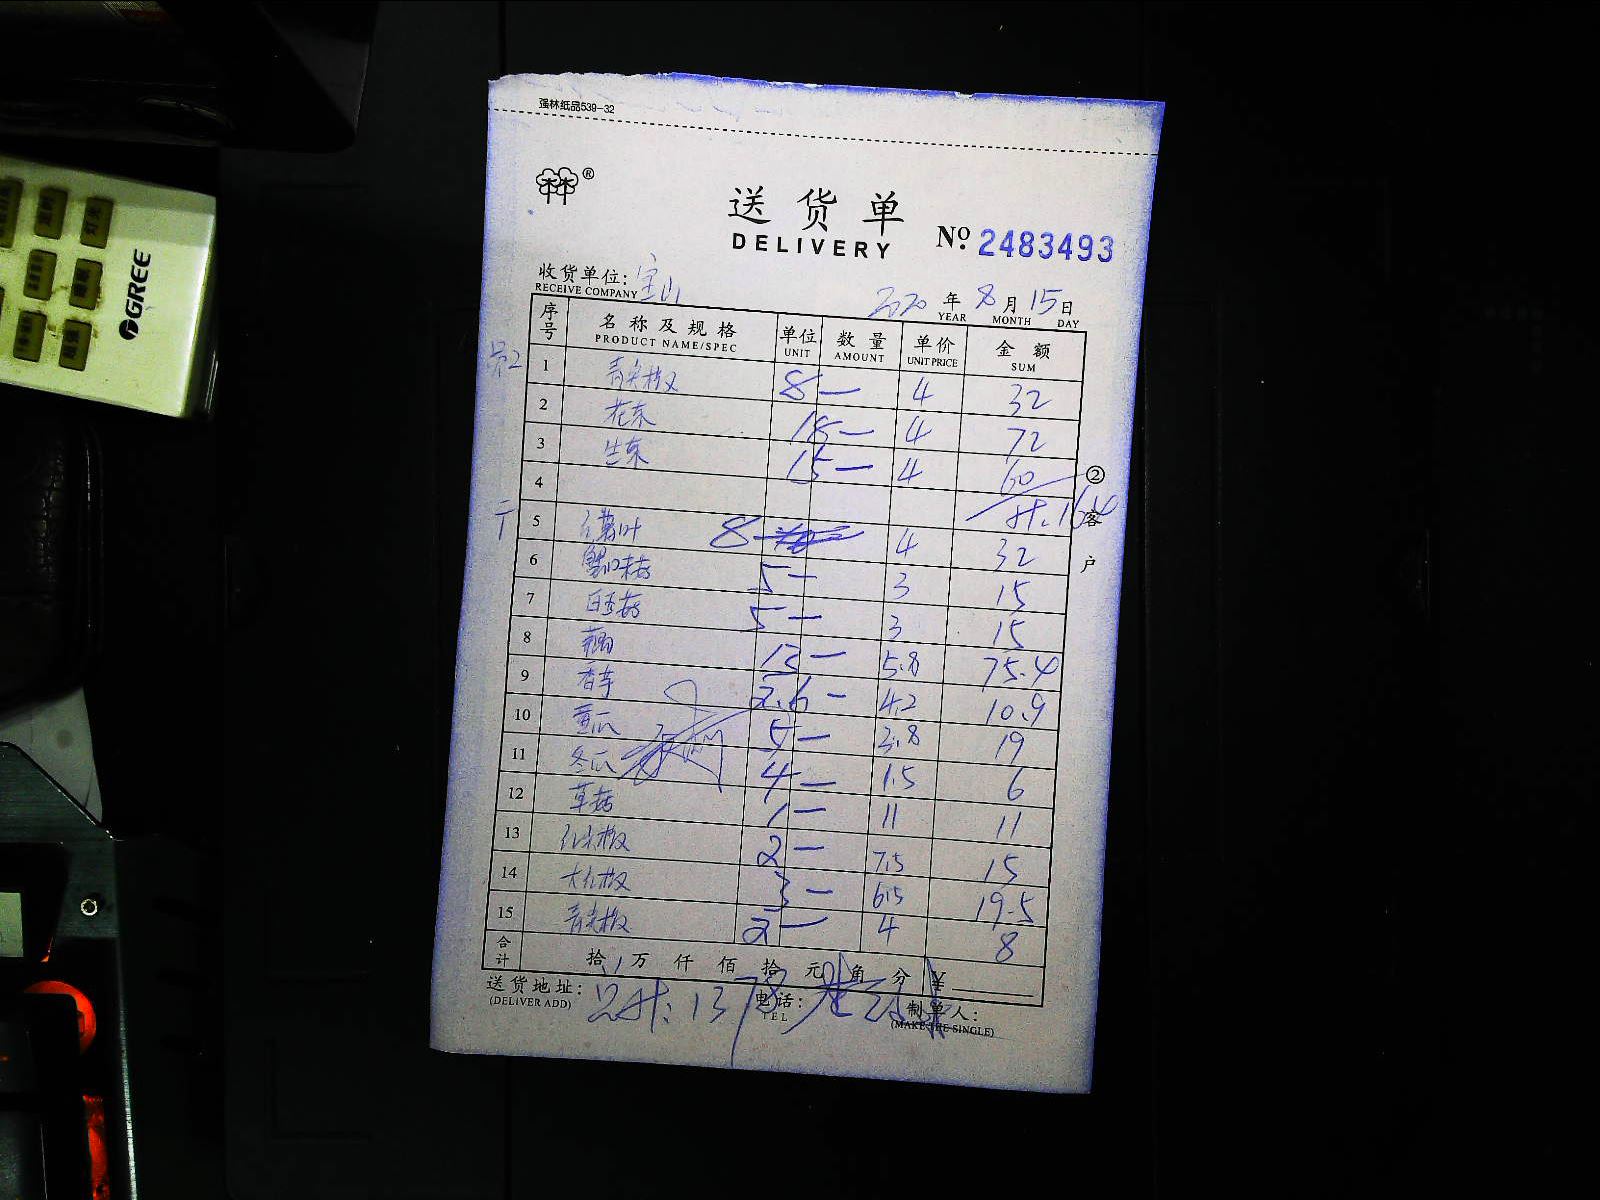 强林纸品539-32
®
送货单
DELIVERY
No. 2483493
收货单位: 宝山
RECEIVE COMPANY
2020 年 8 月 15 日
YEAR MONTH DAY
序号 名称及规格 单位 数量 单价 金额
PRODUCT NAME/SPEC UNIT AMOUNT UNIT PRICE SUM
1 青尖椒 8— 4 32
2 花菜 18— 4 72
3 生菜 15— 4 60
4 共164
5 薯叶 8— 4 32
6 蟹味菇 5— 3 15
7 白玉菇 5— 3 15
8 13— 5.8 75.4
9 香芋 2.6— 4.2 10.9
10 黄瓜 5— 3.8 19
11 冬瓜 4— 1.5 6
12 草菇 1— 11 11
13 红尖椒 2— 7.5 15
14 大红椒 3— 6.5 19.5
15 青尖椒 2— 4 8
合计 拾 万 仟 佰 拾 元 角 分 ¥
送货地址:
(DELIVER ADD)
电话:
TEL
制单人:
(MAKE THE SINGLE)
②客户
GREE